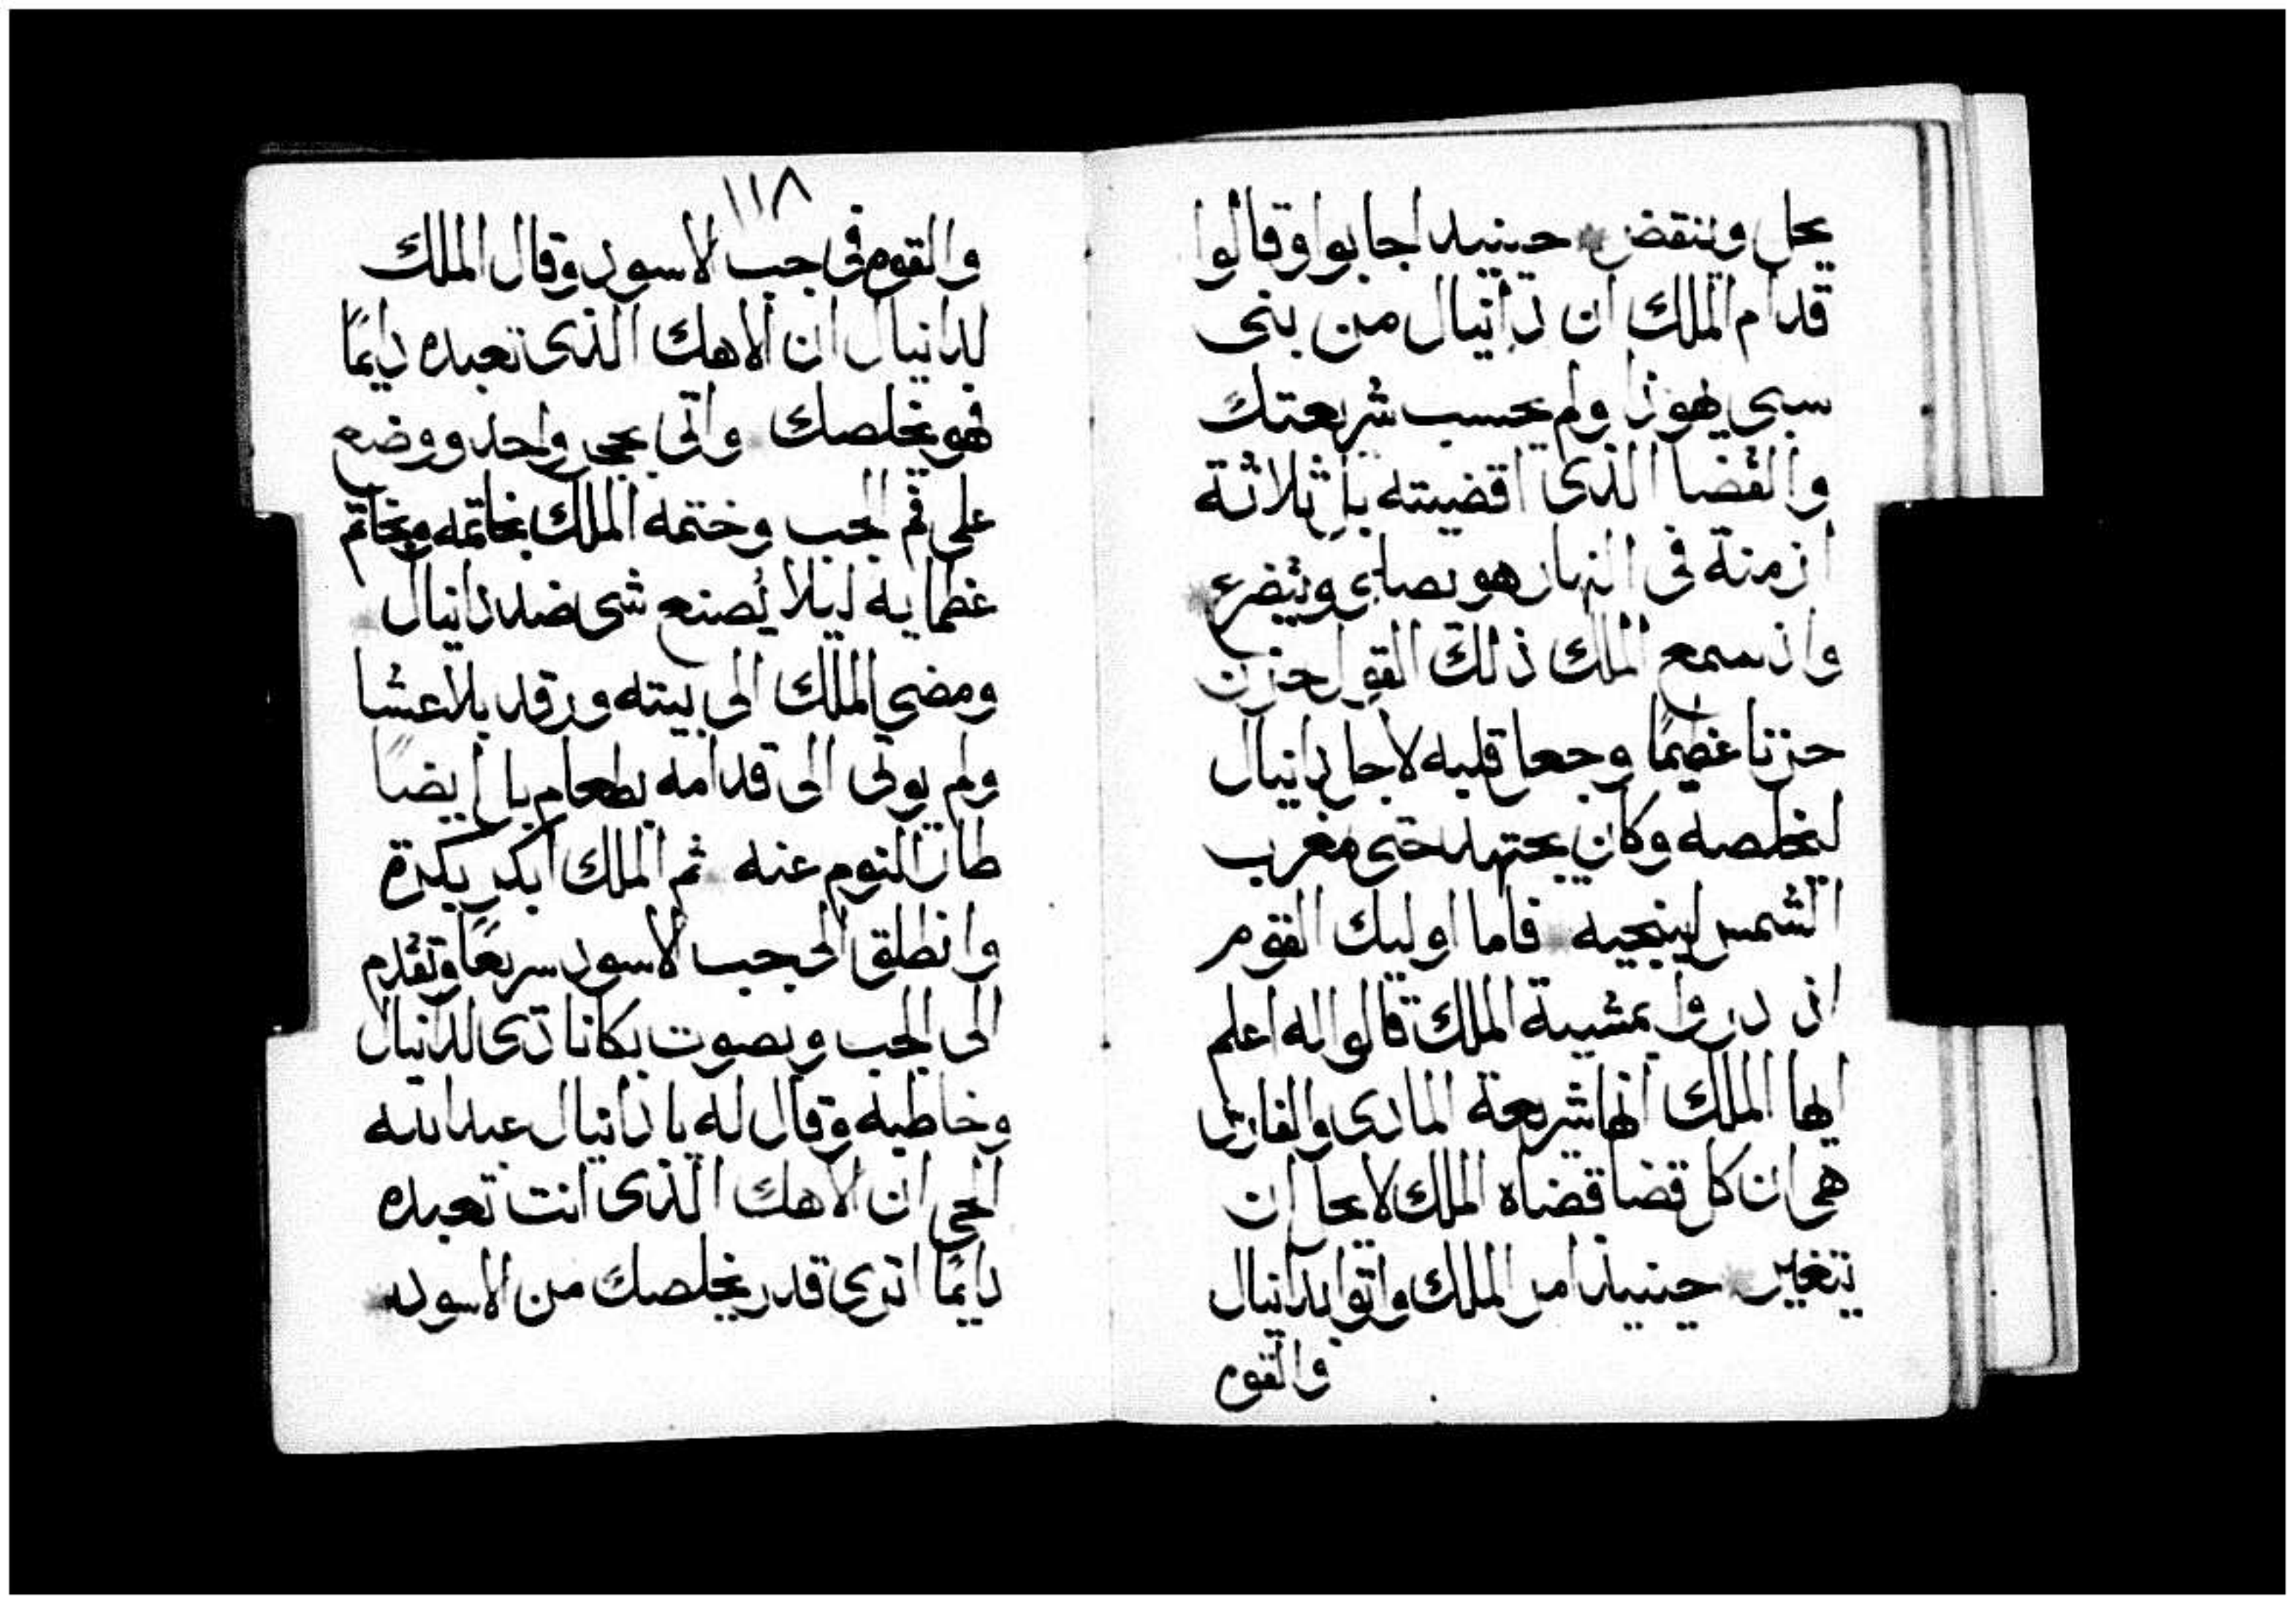 يحل وينقض حينيد اجابوا وقالوا
قدام الملك ان دانيال من بنى
سبى يهوذا ولم يحسب شريعتك
والقضا الذى اقضيته بل ثلاثة
ازمنة فى النهار هو يصلى ويتضرع
واذ سمع الملك ذلك القول حزن
حزنا عظيمًا وجعل قلبه لاجل دانيال
ليخلصه وكان يجتهد حتى مغرب
الشمس لينجيه فاما اوليك القوم
اذ دروا بمشيية الملك قالوا له اعلم
ايها الملك انها شريعة المادى والفارس
هى ان كل قضا قضاه الملك لا يحل ان
يتغير حينيذ امر الملك واتوا بدانيال
والقوم
١١٨
والقوم فى جب الاسود وقال الملك
لدانيال ان الاهك الذى تعبده دايمًا
فهو يخلصك واتى بحجر واحد ووضع
على فم الجب وختمه الملك بخاتمه وبخاتم
عظمايه ليلا يُصنع شى ضد دانيال
ومضى الملك الى بيته ورقد بلا عشا
ولم يوتى الى قدامه بطعام بل ايضًا
طار النوم عنه ثم الملك ابكر بكرة
وانطلق الى جب الاسود سريعًا وتقدم
الى الجب وبصوت بكا نادى لدانيال
وخاطبه وقال له يا دانيال عبد الله
الحى ان الاهك الذى انت تعبده
دايمًا اترى قدر يخلصك من الاسود